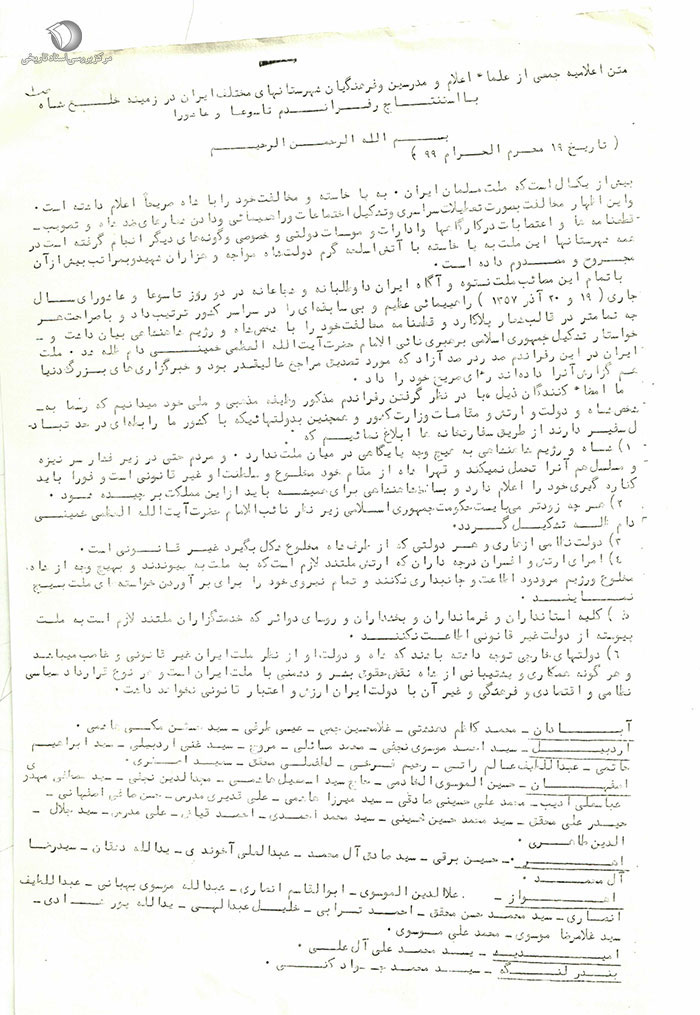 مرکز بررسی اسناد تاریخی
متن اعلامیه جمعی از علماء اعلام و مدرسین و فرهنگیان شهرستانهای مختلف ایران در زمینه خلع شاه
با استنتاج رفراندم تاسوعا و عاشورا
بسم الله الرحمن الرحیم
( تاریخ ۱۹ محرم الحرام ۹۹ )
بیش از یکسال است که ملت مسلمان ایران بپا خاسته و مخالفت خود را با شاه صریحاً اعلام داشته است .
و این اظهار مخالفت بصورت تعطیلات سراسری و تشکیل اجتماعات و راهپیمائی و دادن شعارهای ضد شاه و تصویب ـ
قطعنامه ها و اعتصابات در کارگاهها و ادارات و موسسات دولتی و خصوصی و گونه های دیگر انجام گرفته است در
همه شهرستانها این ملت بپا خاسته با آتش اسلحه گرم دولت شاه مواجه و هزاران شهید و بمراتب بیش از آن
مجروح و مصدوم داده است .
با تمام این مصائب ملت نستوه و آگاه ایران داوطلبانه و شجاعانه در دو روز تاسوعا و عاشورای سال
جاری ( ۱۹ و ۲۰ آذر ۱۳۵۷ ) راهپیمائی عظیم و بی سابقه ای را در سراسر کشور ترتیب داد و با صراحت هر
چه تمامتر در قالب شعار پلاکارد و قطعنامه مخالفت خود را با شخص شاه و رژیم شاهنشاهی بیان داشت و ـ
خواستار تشکیل جمهوری اسلامی برهبری نائب الامام حضرت آیت الله العظمی خمینی دام ظله شد . ملت
ایران در این رفراندم صد در صد آزاد که مورد تصدیق مراجع عالیقدر بود و خبرگزاریهای بزرگ دنیا
هم گزارش آنرا داده اند رای صریح خود را داد .
ما امضاء کنندگان ذیل با در نظر گرفتن رفراندم مذکور وظیفه مذهبی و ملی خود میدانیم که رسما به ـ
شخص شاه و دولت و ارتش و مقامات وزارت کشور و همچنین بدولتهائیکه با کشور ما رابطه ای در حد تبادـ
ل سفیر دارند از طریق سفارتخانه ها ابلاغ نمائیم که .
۱) شاه و رژیم شاهنشاهی به هیچ وجه پایگاهی در میان ملت ندارد . و مردم حتی در زیر فشار سر نیزه
و مسلسل هم آنرا تحمل نمیکند و قهرا شاه از مقام خود مخلوع و سلطنت او غیر قانونی است و فورا باید
کناره گیری خود را اعلام دارد و بساط شاهنشاهی برای همیشه باید از این مملکت برچیده شود .
۲) هر چه زودتر می بایست حکومت جمهوری اسلامی زیر نظر نائب الامام حضرت آیت الله العظمی خمینی
دام ظله تشکیل گردد.
۳) دولت نظامی ازهاری و هر دولتی که از طرف شاه مخلوع شکل بگیرد غیر قانونی است .
٤) امرای ارتش و افسران درجه داران که ارتش ملتند لازم است که به ملت به پیوندند و بهیچ وجه از شاه
مخلوع و رژیم مردود اطاعت و جانبداری نکنند و تمام نیروی خود را برای بر آوردن خواسته ای ملت بسیج
نمایند .
۵ ) کلیه استانداران و فرمانداران و بخشداران و روسای دوائر که خدمتگزاران ملتند لازم است به ملت
بپیوسته از دولت غیر قانونی اطاعت نکنند .
٦) دولتهای خارجی توجه داشته باشند که شاه و دولت او از نظر ملت ایران غیر قانونی و غاصب میباشد
و هر گونه همکاری و پشتیبانی از شاه نقض حقوق بشر و دشمنی با ملت ایران است و هر نوع قرارداد سیاسی
نظامی و اقتصادی و فرهنگی و غیر آن با دولت ایران ارزش و اعتبار قانونی نخواهد داشت .
آبادان ـ محمد کاظم دهدشتی ـ غلامحسین جمی ـ عیسی طرفی ـ سید مکی هاشمی .
اردبیل ـ سید احمد موسوی نجفی ـ محمد مسائلی ـ مروج ـ سید غنی اردبیلی ـ سید ابراهیم
هاتمی ـ عبداللطیف ـ رحیم ـ محقق ـ سعید اصغری .
اصفهان ـ حسین الموسوی الخادمی ـ حاج سید اسمعیل هاشمی ـ مجدالدین نجفی ـ سید مهدی
عباسعلی ادیب ـ محمد علی حسینی صادقی ـ سید میرزا هاشمی ـ علی قدیری مدرس ـ حسن اصفهانی ـ
حیدر علی محقق ـ سید محمد حسین حسینی ـ سید محمد احمدی ـ احمد ـ علی مدرس ـ سید جلال ـ
الدین طاهری .
اهر ـ حسین برقی ـ سید صادق آل محمد ـ عبدالعلی آخوندی ـ یدالله دهقان ـ سید رضا
آل محمد .
اهواز ـ علاالدین الموسوی ـ ابوالقاسم انصاری ـ عبدالله موسوی بهبهانی ـ عبداللطیف
انصاری ـ سید محمد حسن محقق ـ احمد ترابی ـ خلیل عبدالهی ـ یدالله پور هادی ـ
سید غلامرضا موسوی ـ محمد علی موسوی .
امیدیه ـ سید محمد علی آل علی .
بندر لنگه ـ سید محمد جواد کنی .